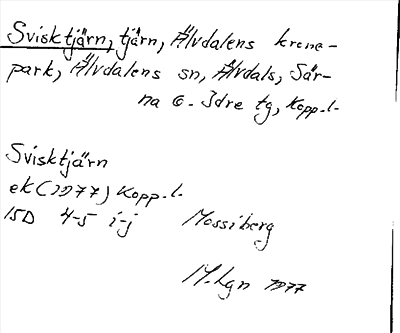 Svisktjärn, tjärn, Älvdalens krono-
park, Älvdalens sn, Älvdals, Sär-
na o. Idre tg, Kopp. l.
Svisktjärn
ek (1977) Kopp. l.
15D 4-5 i-j Mossiberg
M. Lgn 1977